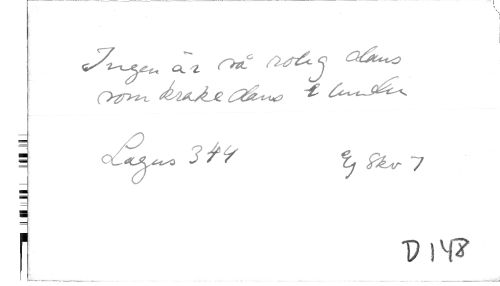 Ingen är så rolig dans
som krake dans i lunden
Lagus 344
Ej Skv 7
D 148